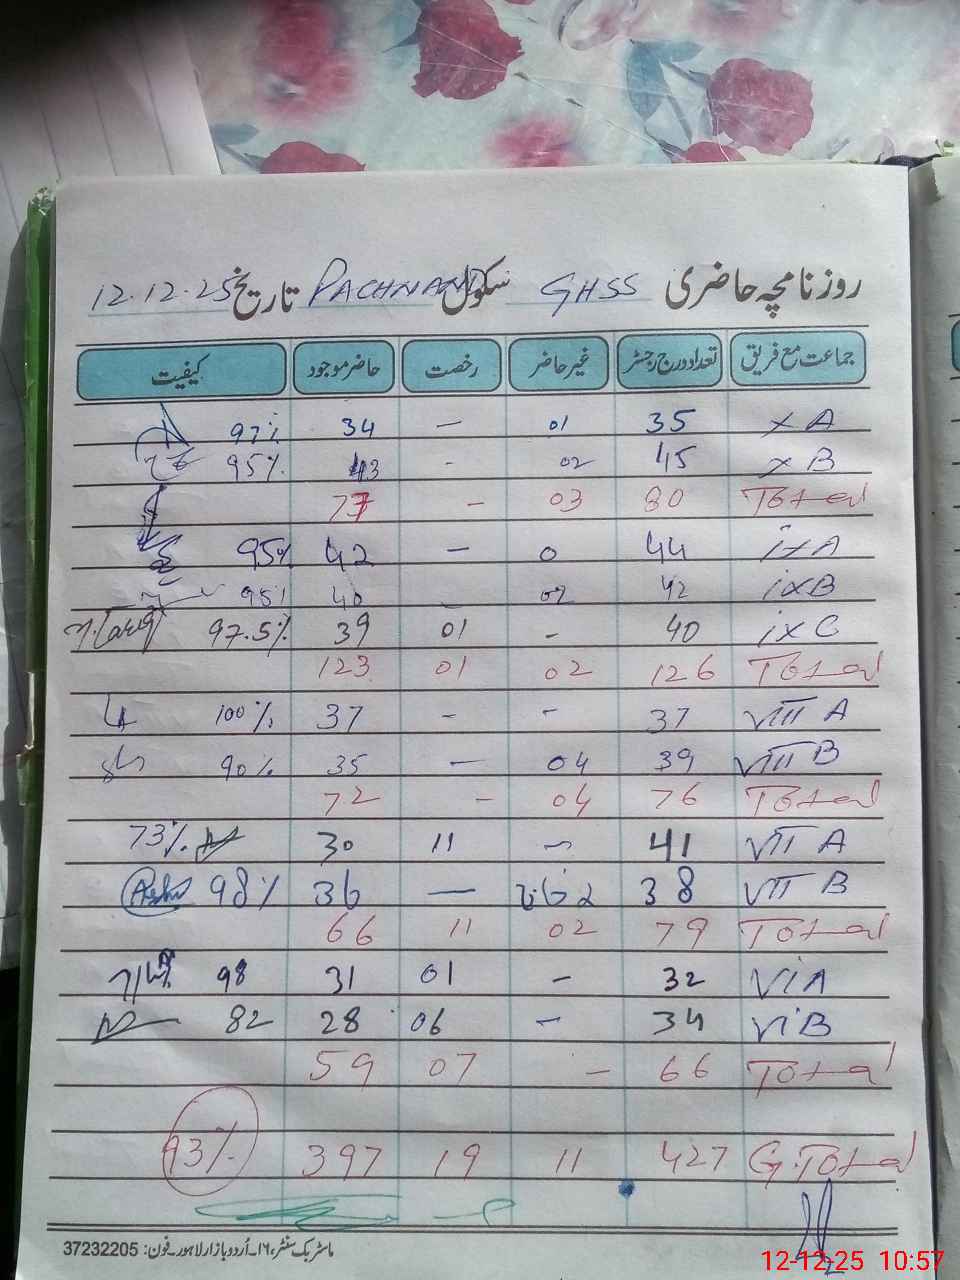 روزنامچہ حاضری GHSS سکول PACHNAND تاریخ 12.12.25
جماعت مع فریق تعداد درج رجسٹر غیر حاضر رخصت حاضر موجود کیفیت
X A 35 01 — 34 97%
X B 45 02 - 43 95%
Total 80 03 - 77
ixA 44 0 — 42 95%
ixB 42 02 40 95%
ix C 40 - 01 39 97.5%
Total 126 02 01 123
VIII A 37 - - 37 100%
VIII B 39 04 — 35 90%
Total 76 04 - 72
VII A 41 - 11 30 73%
VII B 38 — 36 98%
Total 79 02 11 66
ViA 32 - 01 31 98
ViB 34 - 06 28 82
Total 66 - 07 59
G.Total 427 11 19 397 93%
ماسٹر بک سنٹر، ۱۶۔اُردو بازار لاہور۔فون: 37232205
12-12-25 10:57